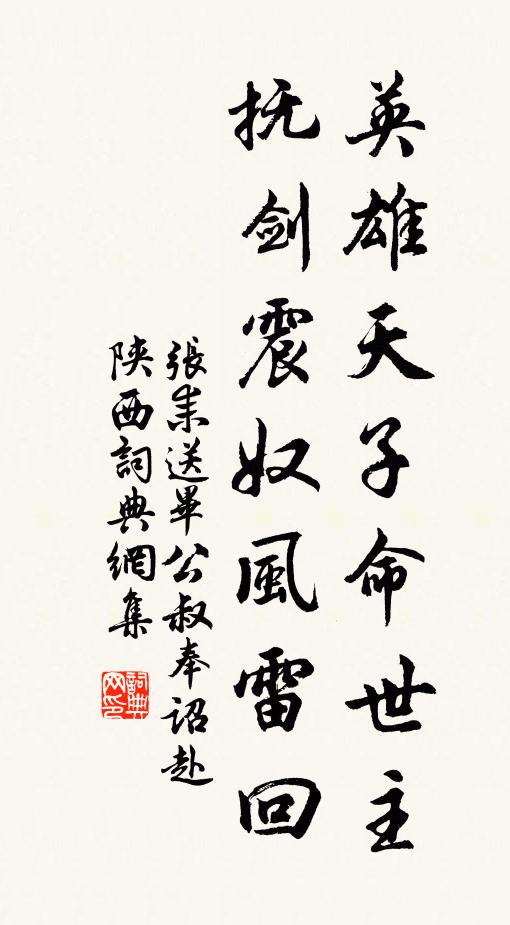 英雄天子命世主
抚剑震奴風雷回
張耒送畢公叔奉詔赴
陝西詞典網集
詞典
网印